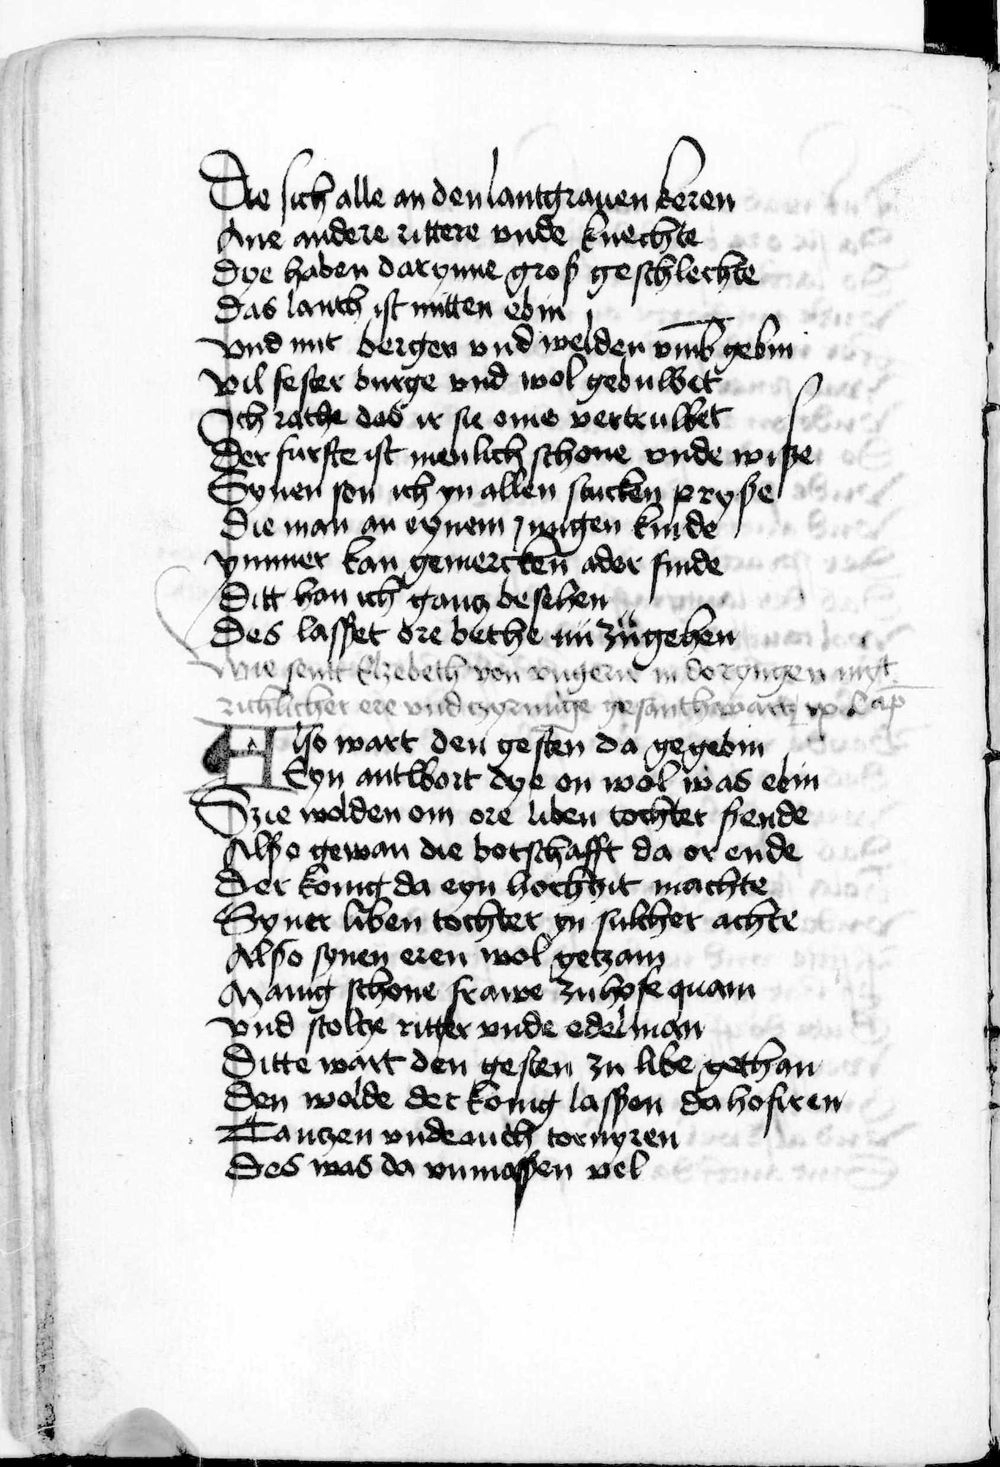 Die sich alle an den lantgrauen keren
Ane andere rittere vnde knechte
Dye haben darynne groß geschlechte
Das lanth ist mitten ebin
Vnd mit bergen vnd welden vmb gebin
Vil fester burge vnd wol gebuwet
Ich rathe das ir sie eme vertruwet
Der furste ist menlich schone vnde wiße
Synen son ich yn allen stucken pryße
Die man an eynem jungen kinde
ymmer kan gemercken ader finde
Ditt han ich gantz besehen
Des lasset ore bethe nu zugehen
Wie sentt Elzebeth von vngern in doryngen myt
richlicher ere vnd czyrunge gesanth wartt Cap
Also wart den gesten da gegebin
Eyn antwort dye on wol was ebin
Szie wolden om ore liben tochter ßende
Alßo gewan die botschafft da or ende
Der konig da eyn hochzit machte
Syner liben tochter yn sulcher achte
Alßo synen eren wol getzam
Manig schone frawe zu hofe quam
Vnd stoltze ritter vnde edelman
Ditte wart den gesten zu libe gethan
Den wolde der konig lassen da hofiren
Tantzen vnde auch tornyren
Des was da vnmossen vel